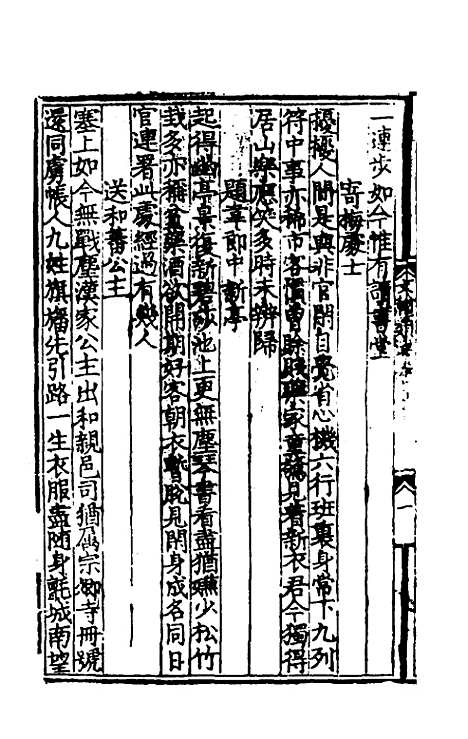 一連步如今惟有讀書堂
寄梅處士
擾擾人間是與非官閑自覺省心機六行班裏身常下九列
符中事亦稀市客慣曾賒賤藥家童驚見著新衣君今獨得
居山樂應笑多時未辦歸
題韋郎中新亭
起得幽亭景復新碧莎池上更無塵琴書看盡猶嫌少松竹
栽多亦稱貧藥酒欲開期好客朝衣暫脫見閑身成名同日
官連署此處經過有幾人
送和蕃公主
塞上如今無戰塵漢家公主出和親邑司猶屬宗卿寺冊號
還同虜帳人九姓旗旛先引路一生衣服盡隨身氈城南望